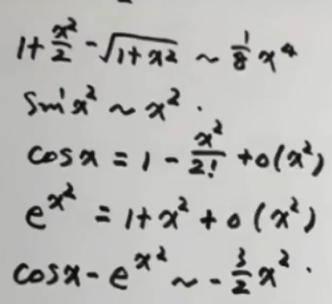 1+x²/2 - √(1+x²) ~ 1/8 x⁴
sin x² ~ x².
cosx = 1 - x²/2! + o(x²)
e^x² = 1+x²+o(x²)
cosx - e^x² ~ -3/2 x².